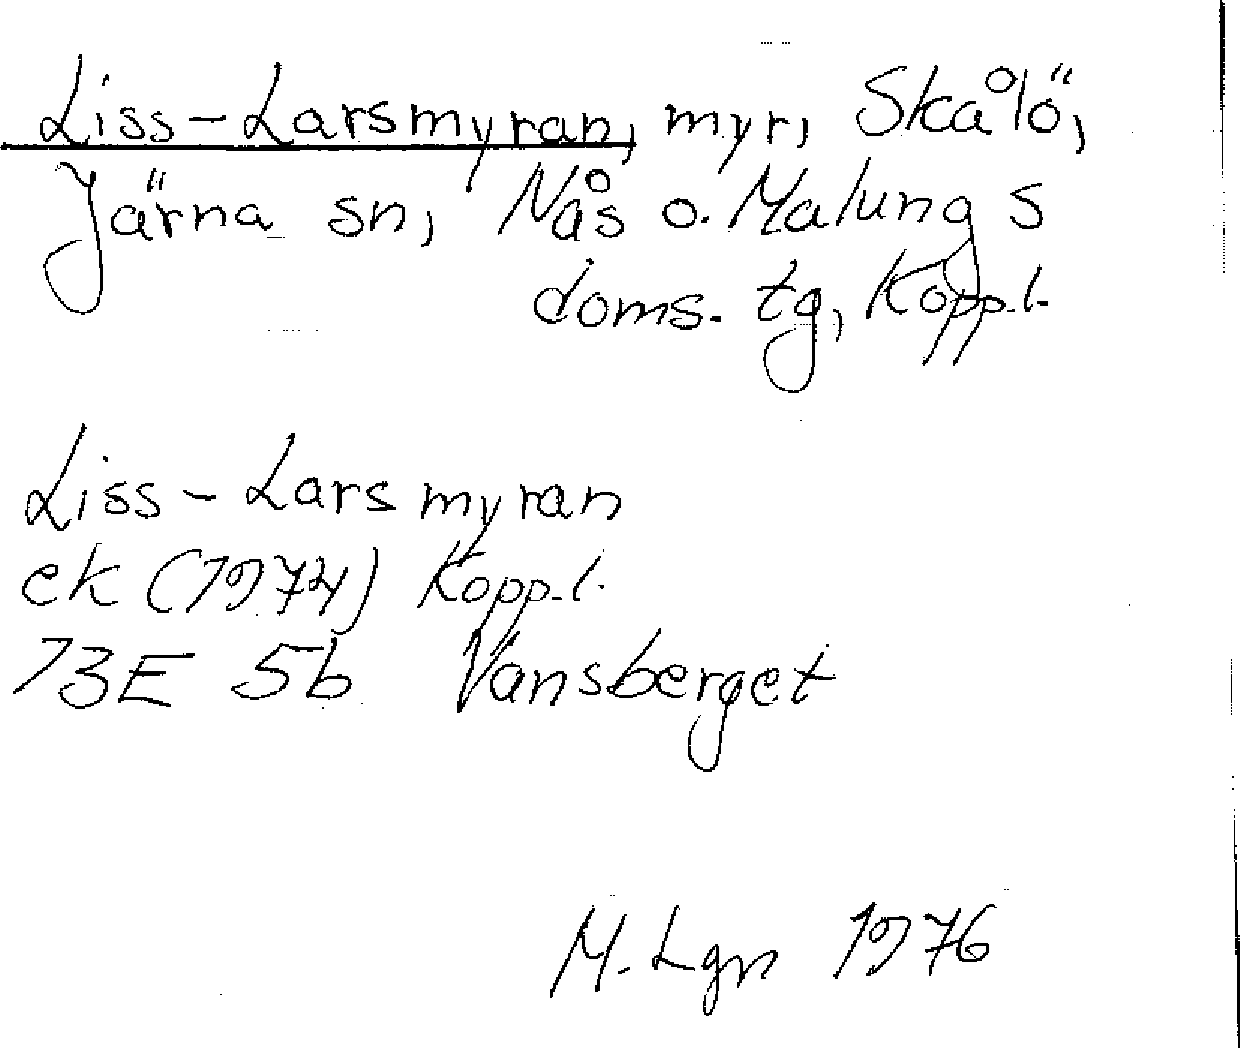 Liss-Larsmyran, myr, Skålö,
Järna sn, Nås o. Malungs
doms. tg, Kopp.l.
Liss-Larsmyran
ek (1974) Kopp.l.
13E 5b Vansberget
M. Lgn 1976